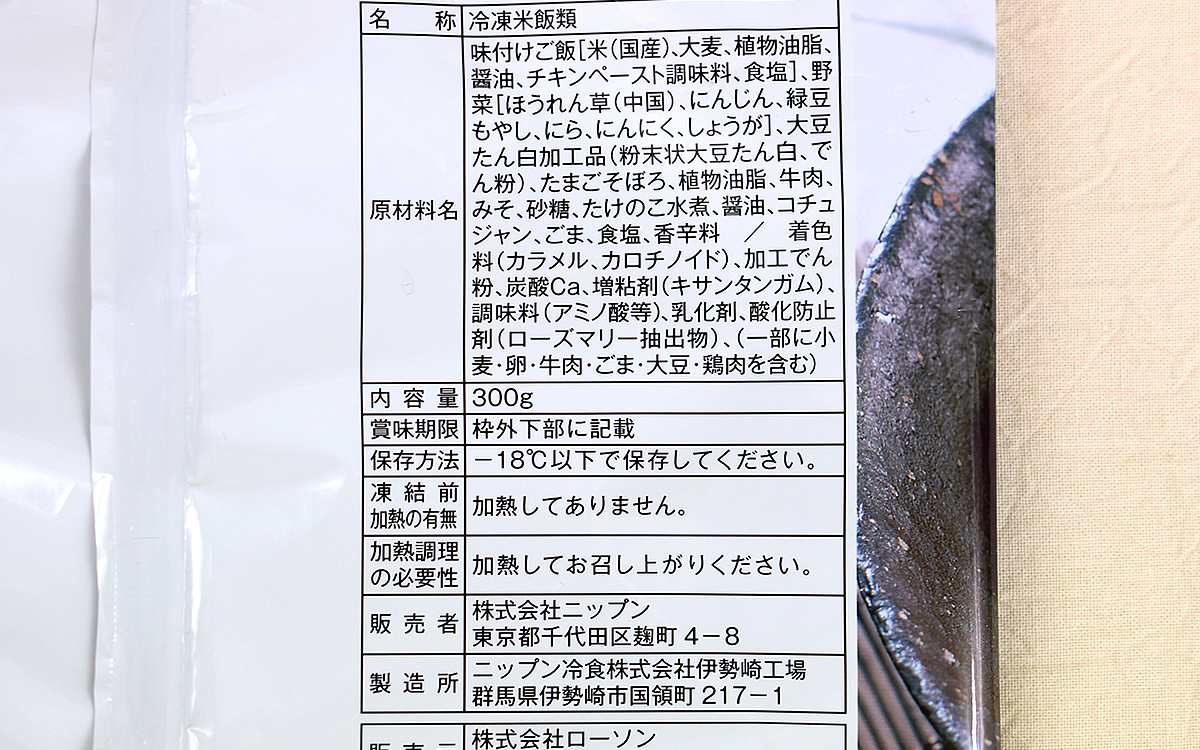 名称 冷凍米飯類
味付けご飯[米(国産)、大麦、植物油脂、
醤油、チキンペースト調味料、食塩]、野
菜[ほうれん草(中国)、にんじん、緑豆
もやし、にら、にんにく、しょうが]、大豆
たん白加工品(粉末状大豆たん白、で
ん粉)、たまごそぼろ、植物油脂、牛肉、
原材料名 みそ、砂糖、たけのこ水煮、醤油、コチュ
ジャン、ごま、食塩、香辛料 / 着色
料(カラメル、カロチノイド)、加工でん
粉、炭酸Ca、増粘剤(キサンタンガム)、
調味料(アミノ酸等)、乳化剤、酸化防止
剤(ローズマリー抽出物)、(一部に小
麦・卵・牛肉・ごま・大豆・鶏肉を含む)
内容量 300g
賞味期限 枠外下部に記載
保存方法 -18℃以下で保存してください。
凍結前
加熱の有無 加熱してありません。
加熱調理
の必要性 加熱してお召し上がりください。
販売者 株式会社ニップン
東京都千代田区麹町4-8
製造所 ニップン冷食株式会社伊勢崎工場
群馬県伊勢崎市国領町217-1
株式会社ローソン